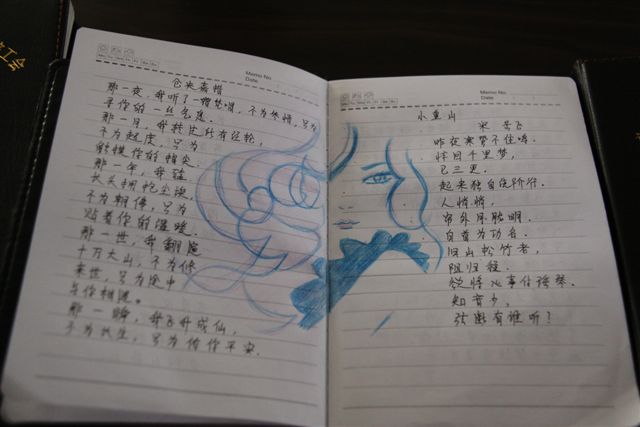 工会
Memo No.
Date
仓央嘉措
那一夜,我听了一宿梵唱,不为参悟,只为
寻你的一丝气息.
那一月,我转过所有经轮,
不为超度,只为
触摸你的指尖.
那一年,我磕
长头拥抱尘埃,
不为朝佛,只为
贴着你的温暖.
那一世,我翻遍
十万大山,不为修
来世,只为途中
与你相遇。
那一瞬,我飞升成仙,
不为长生,只为佑你平安.
Memo No.
Date
小重山
宋 岳飞
昨夜寒蛩不住鸣.
惊回千里梦,
已三更.
起来独自绕阶行.
人悄悄,
帘外月胧明.
白首为功名.
旧山松竹老,
阻归程.
欲将心事付瑶琴.
知音少,
弦断有谁听?